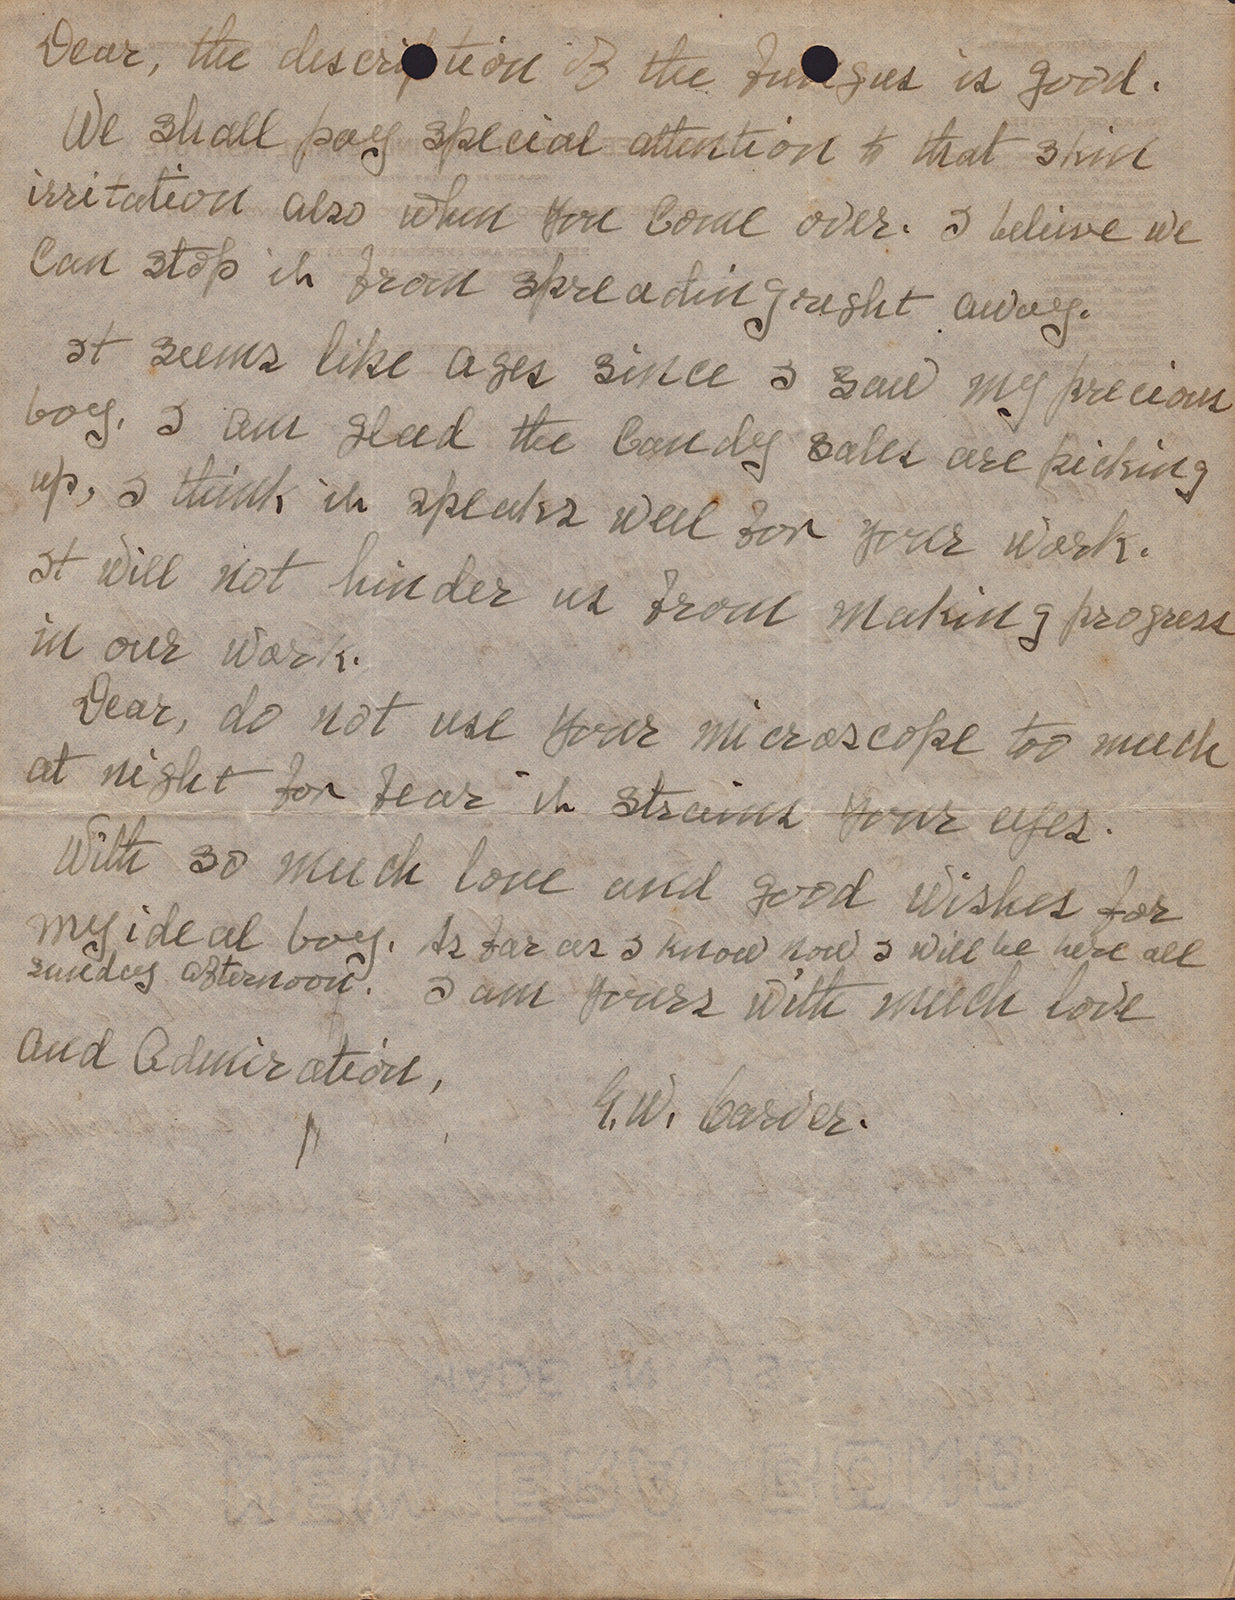 Dear, the description of the fungus is good.
We shall pay special attention to that skin
irritation also when you come over. I believe we
can stop it from spreading right away.
It seems like ages since I saw my precious
boy. I am glad the candy sales are picking
up, I think it speaks well for your work.
It will not hinder us from making progress
in our work.
Dear, do not use your microscope too much
at night for fear it strains your eyes.
With so much love and good wishes for
my ideal boy. As far as I know now I will be here all
sunday afternoon. I am yours with much love
and admiration,
G. W. Carver.